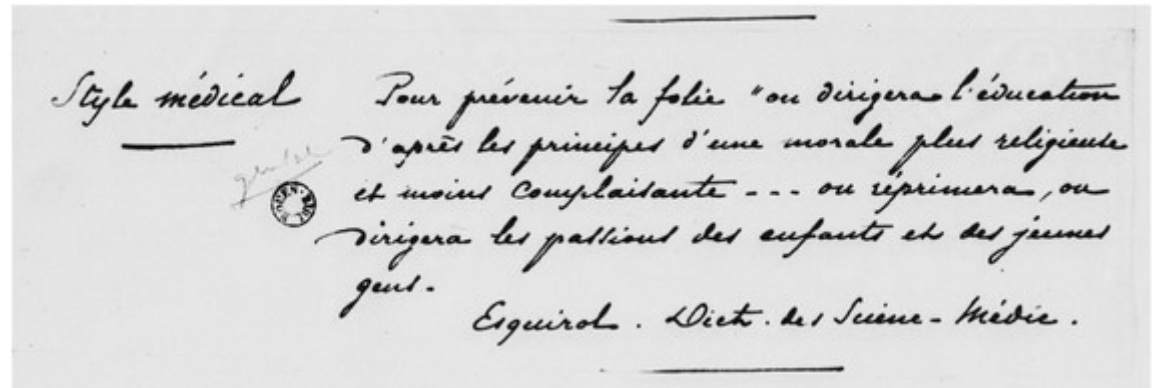 Style médical
Pour prévenir la folie "on dirigera l'éducation
d'après les principes d'une morale plus religieuse
et moins complaisante --- on réprimera, on
dirigera les passions des enfants et des jeunes
gens.
Esquirol. Dict. des Scienc- Médic.